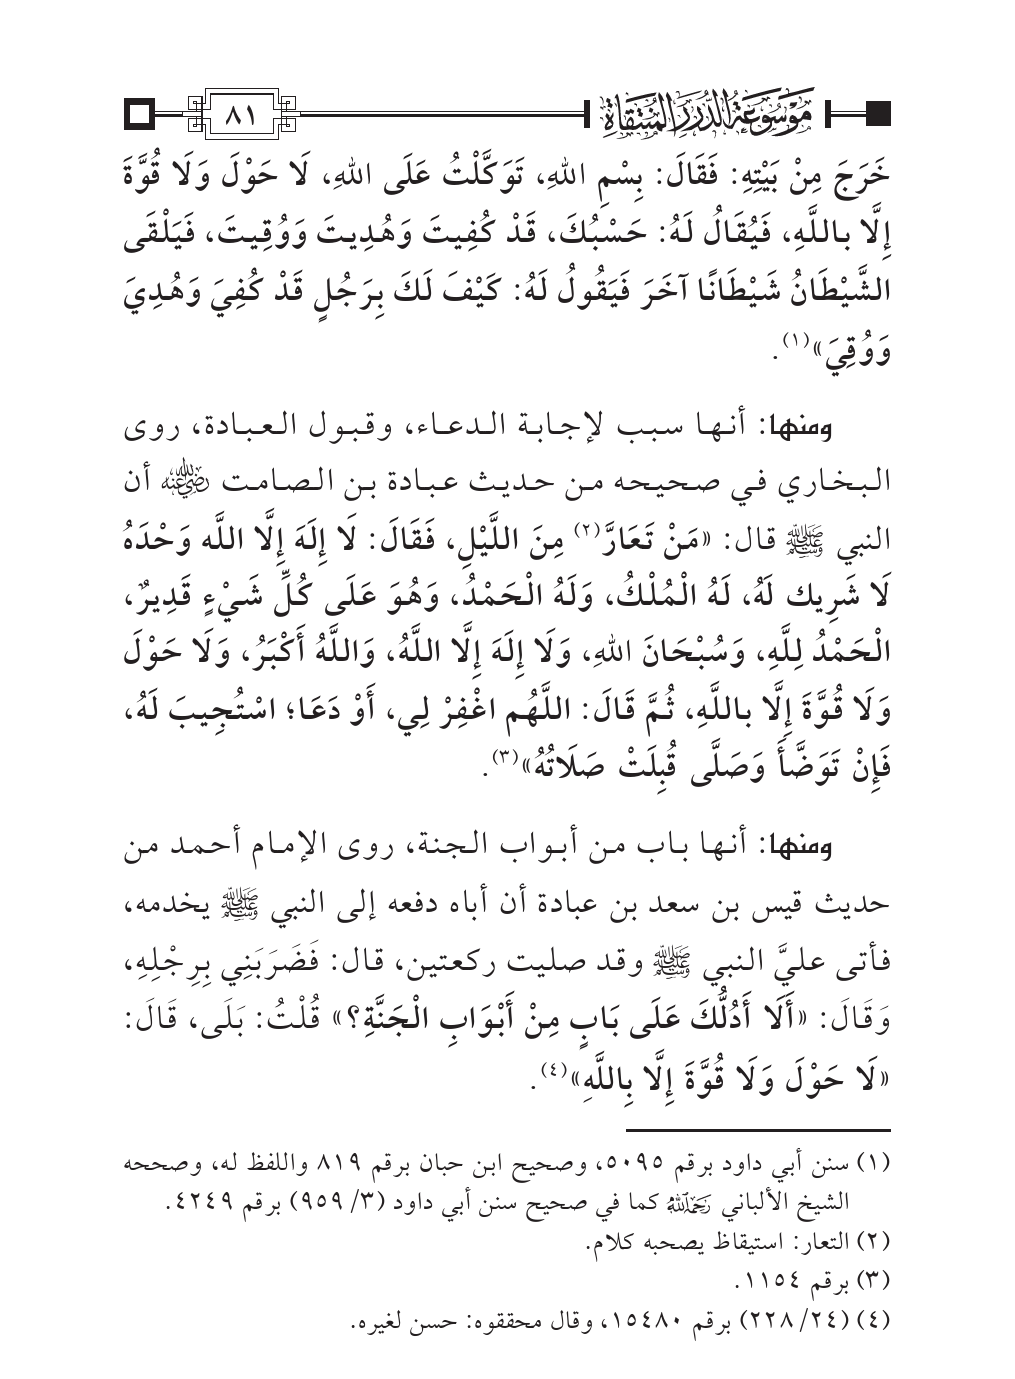 مَوْسُوعَةُ الدُّرَرِ الْمُنْتَقَاةِ
٨١
خَرَجَ مِنْ بَيْتِهِ: فَقَالَ: بِسْمِ اللهِ، تَوَكَّلْتُ عَلَى اللهِ، لَا حَوْلَ وَلَا قُوَّةَ
إِلَّا بـاللَّهِ، فَيُقَالُ لَهُ: حَسْبُكَ، قَدْ كُفِيتَ وَهُدِيتَ وَوُقِيتَ، فَيَلْقَى
الشَّيْطَانُ شَيْطَانًا آخَرَ فَيَقُولُ لَهُ: كَيْفَ لَكَ بِرَجُلٍ قَدْ كُفِيَ وَهُدِيَ
وَوُقِيَ»(١).
ومنها: أنها سبب لإجابة الدعاء، وقبول العبادة، روى
البخاري في صحيحه من حديث عبادة بن الصامت ﵁ أن
النبي ﷺ قال: «مَنْ تَعَارَّ(٢) مِنَ اللَّيْلِ، فَقَالَ: لَا إِلَهَ إِلَّا اللَّه وَحْدَهُ
لَا شَرِيك لَهُ، لَهُ الْمُلْكُ، وَلَهُ الْحَمْدُ، وَهُوَ عَلَى كُلِّ شَيْءٍ قَدِيرٌ،
الْحَمْدُ لِلَّهِ، وَسُبْحَانَ اللهِ، وَلَا إِلَهَ إِلَّا اللَّهُ، وَاللَّهُ أَكْبَرُ، وَلَا حَوْلَ
وَلَا قُوَّةَ إِلَّا بـاللَّهِ، ثُمَّ قَالَ: اللَّهُم اغْفِرْ لِي، أَوْ دَعَا؛ اسْتُجِيبَ لَهُ،
فَإِنْ تَوَضَّأَ وَصَلَّى قُبِلَتْ صَلَاتُهُ»(٣).
ومنها: أنها باب من أبواب الجنة، روى الإمام أحمد من
حديث قيس بن سعد بن عبادة أن أباه دفعه إلى النبي ﷺ يخدمه،
فأتى عليَّ النبي ﷺ وقد صليت ركعتين، قال: فَضَرَبَنِي بِرِجْلِهِ،
وَقَالَ: «أَلَا أَدُلُّكَ عَلَى بَابٍ مِنْ أَبْوَابِ الْجَنَّةِ؟» قُلْتُ: بَلَى، قَالَ:
«لَا حَوْلَ وَلَا قُوَّةَ إِلَّا بِاللَّهِ»(٤).
(١) سنن أبي داود برقم ٥٠٩٥، وصحيح ابن حبان برقم ٨١٩ واللفظ له، وصححه
الشيخ الألباني ﵀ كما في صحيح سنن أبي داود (٣/ ٩٥٩) برقم ٤٢٤٩.
(٢) التعار: استيقاظ يصحبه كلام.
(٣) برقم ١١٥٤.
(٤) (٢٤/ ٢٢٨) برقم ١٥٤٨٠، وقال محققوه: حسن لغيره.